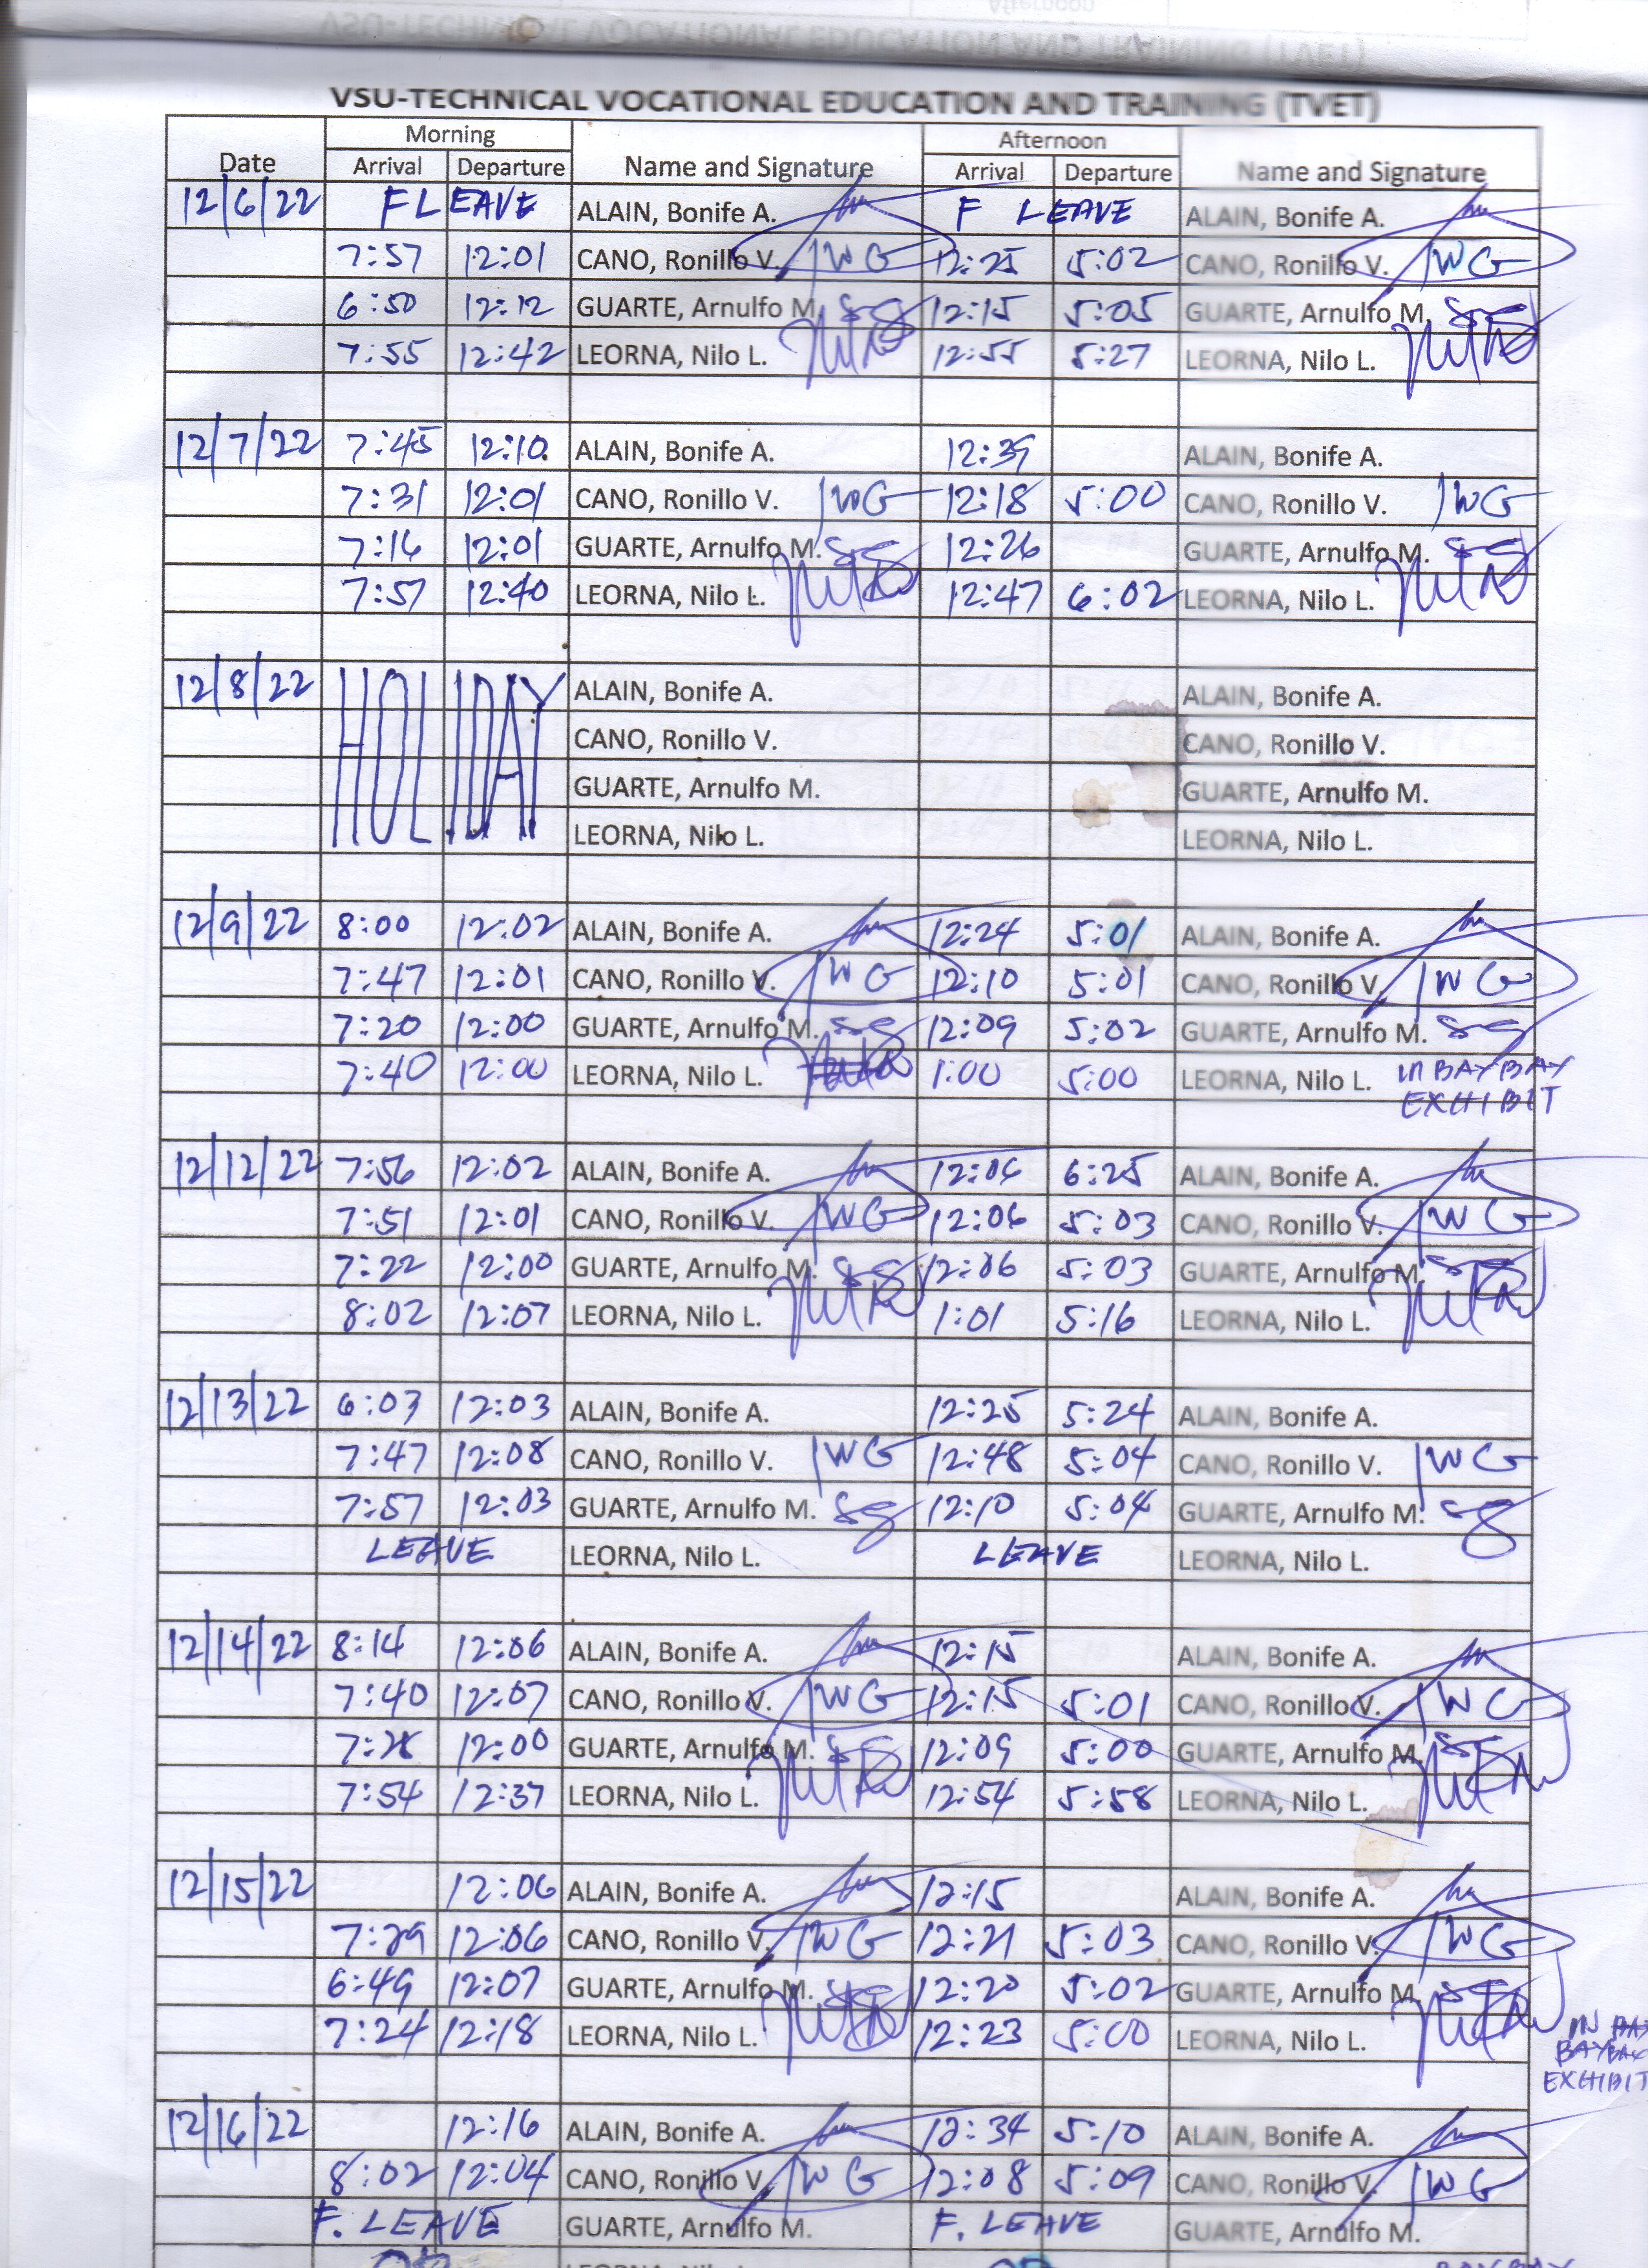 VSU-TECHNICAL VOCATIONAL EDUCATION AND TRAINING (TVET)
Morning Afternoon
Date Arrival Departure Name and Signature Arrival Departure Name and Signature
12/6/22 F LEAVE ALAIN, Bonife A. F LEAVE ALAIN, Bonife A.
7:57 12:01 CANO, Ronillo V. 12:25 5:02 CANO, Ronillo V.
6:50 12:12 GUARTE, Arnulfo M. 12:15 5:05 GUARTE, Arnulfo M.
7:55 12:42 LEORNA, Nilo L. 12:55 5:27 LEORNA, Nilo L.
12/7/22 7:45 12:10 ALAIN, Bonife A. 12:39 ALAIN, Bonife A.
7:31 12:01 CANO, Ronillo V. 12:18 5:00 CANO, Ronillo V.
7:16 12:01 GUARTE, Arnulfo M. 12:26 GUARTE, Arnulfo M.
7:57 12:40 LEORNA, Nilo L. 12:47 6:02 LEORNA, Nilo L.
12/8/22 HOLIDAY ALAIN, Bonife A. ALAIN, Bonife A.
CANO, Ronillo V. CANO, Ronillo V.
GUARTE, Arnulfo M. GUARTE, Arnulfo M.
LEORNA, Nilo L. LEORNA, Nilo L.
12/9/22 8:00 12:02 ALAIN, Bonife A. 12:24 5:01 ALAIN, Bonife A.
7:47 12:01 CANO, Ronillo V. 12:10 5:01 CANO, Ronillo V.
7:20 12:00 GUARTE, Arnulfo M. 12:09 5:02 GUARTE, Arnulfo M.
7:40 12:00 LEORNA, Nilo L. 1:00 5:00 LEORNA, Nilo L. IN BAYBAY
EXHIBIT
12/12/22 7:56 12:02 ALAIN, Bonife A. 12:06 6:25 ALAIN, Bonife A.
7:51 12:01 CANO, Ronillo V. 12:06 5:03 CANO, Ronillo V.
7:22 12:00 GUARTE, Arnulfo M. 12:06 5:03 GUARTE, Arnulfo M.
8:02 12:07 LEORNA, Nilo L. 1:01 5:16 LEORNA, Nilo L.
12/13/22 6:03 12:03 ALAIN, Bonife A. 12:25 5:24 ALAIN, Bonife A.
7:47 12:08 CANO, Ronillo V. 12:48 5:04 CANO, Ronillo V.
7:57 12:03 GUARTE, Arnulfo M. 12:10 5:04 GUARTE, Arnulfo M.
LEAVE LEORNA, Nilo L. LEAVE LEORNA, Nilo L.
12/14/22 8:14 12:06 ALAIN, Bonife A. 12:15 ALAIN, Bonife A.
7:40 12:07 CANO, Ronillo V. 12:15 5:01 CANO, Ronillo V.
12:00 GUARTE, Arnulfo M. 12:09 5:00 GUARTE, Arnulfo M.
7:54 12:37 LEORNA, Nilo L. 12:54 5:58 LEORNA, Nilo L.
12/15/22 12:06 ALAIN, Bonife A. 12:15 ALAIN, Bonife A.
7:29 12:06 CANO, Ronillo V. 12:21 5:03 CANO, Ronillo V.
6:49 12:07 GUARTE, Arnulfo M. 12:20 5:02 GUARTE, Arnulfo M.
7:24 12:18 LEORNA, Nilo L. 12:23 5:00 LEORNA, Nilo L. IN
EXHIBIT
12/16/22 12:16 ALAIN, Bonife A. 12:34 5:10 ALAIN, Bonife A.
8:02 12:04 CANO, Ronillo V. 12:08 5:09 CANO, Ronillo V.
F. LEAVE GUARTE, Arnulfo M. F. LEAVE GUARTE, Arnulfo M.